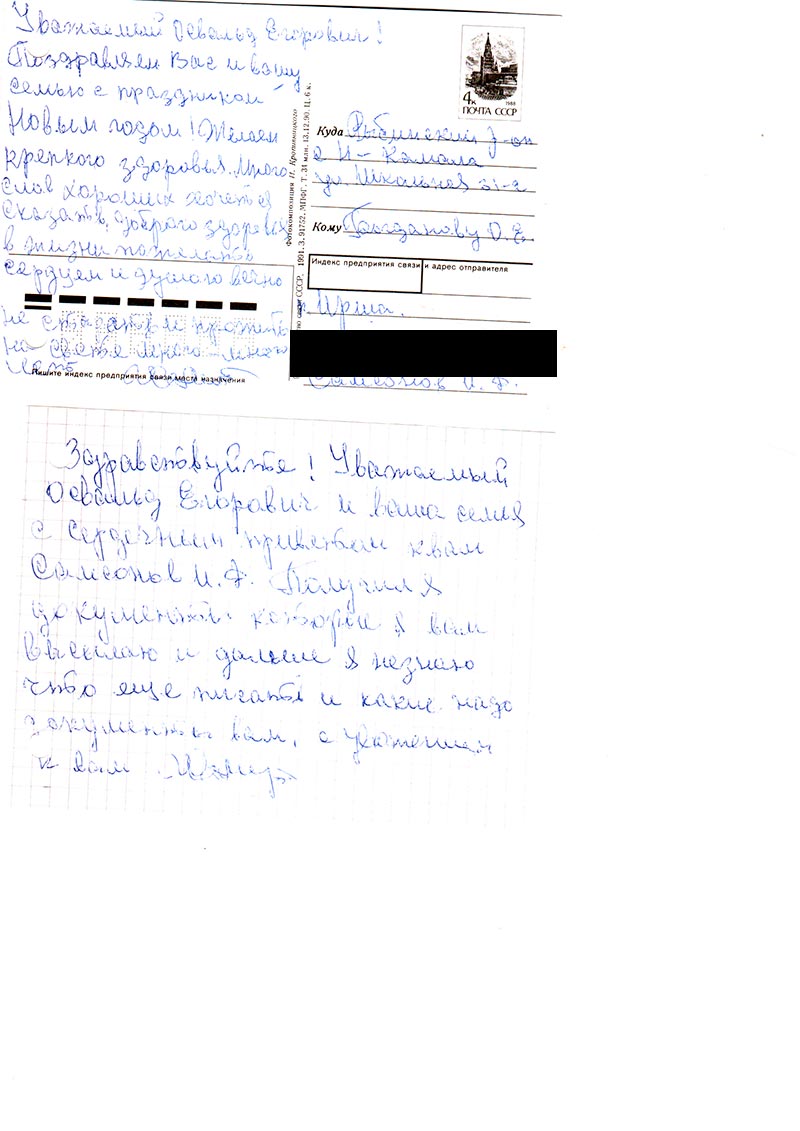 Уважаемый Освальд Егорович!
Поздравляем Вас и вашу
семью с праздником
Новым годом! Желаем
крепкого здоровья. Много
слов хороших хочется
сказать, доброго здоровья
в жизни пожелать
сердцем и душою вечно
не стареть и прожить
на свете много-много
лет
Пишите индекс предприятия связи места назначения
Фотокомпозиция Н. Кропивницкого
СССР, 1991. З. 91752. МПФГ. Т. 31 млн. 13.12.90. Ц. 6 к.
4к 1988
ПОЧТА СССР
Куда Рыбинский р-он
с Н-Камала
ул. Школьная 31-2
Кому Богданову О.Е.
Индекс предприятия связи и адрес отправителя
п. Ирша.
Самсонов И.Ф.
Здравствуйте! Уважаемый
Освальд Егорович и ваша семья
с сердечным приветом к вам
Самсонов И.Ф. Получил я
документы которые я вам
высылаю и дальше я незнаю
что еще писать и какие надо
документы вам, с уважением
к вам